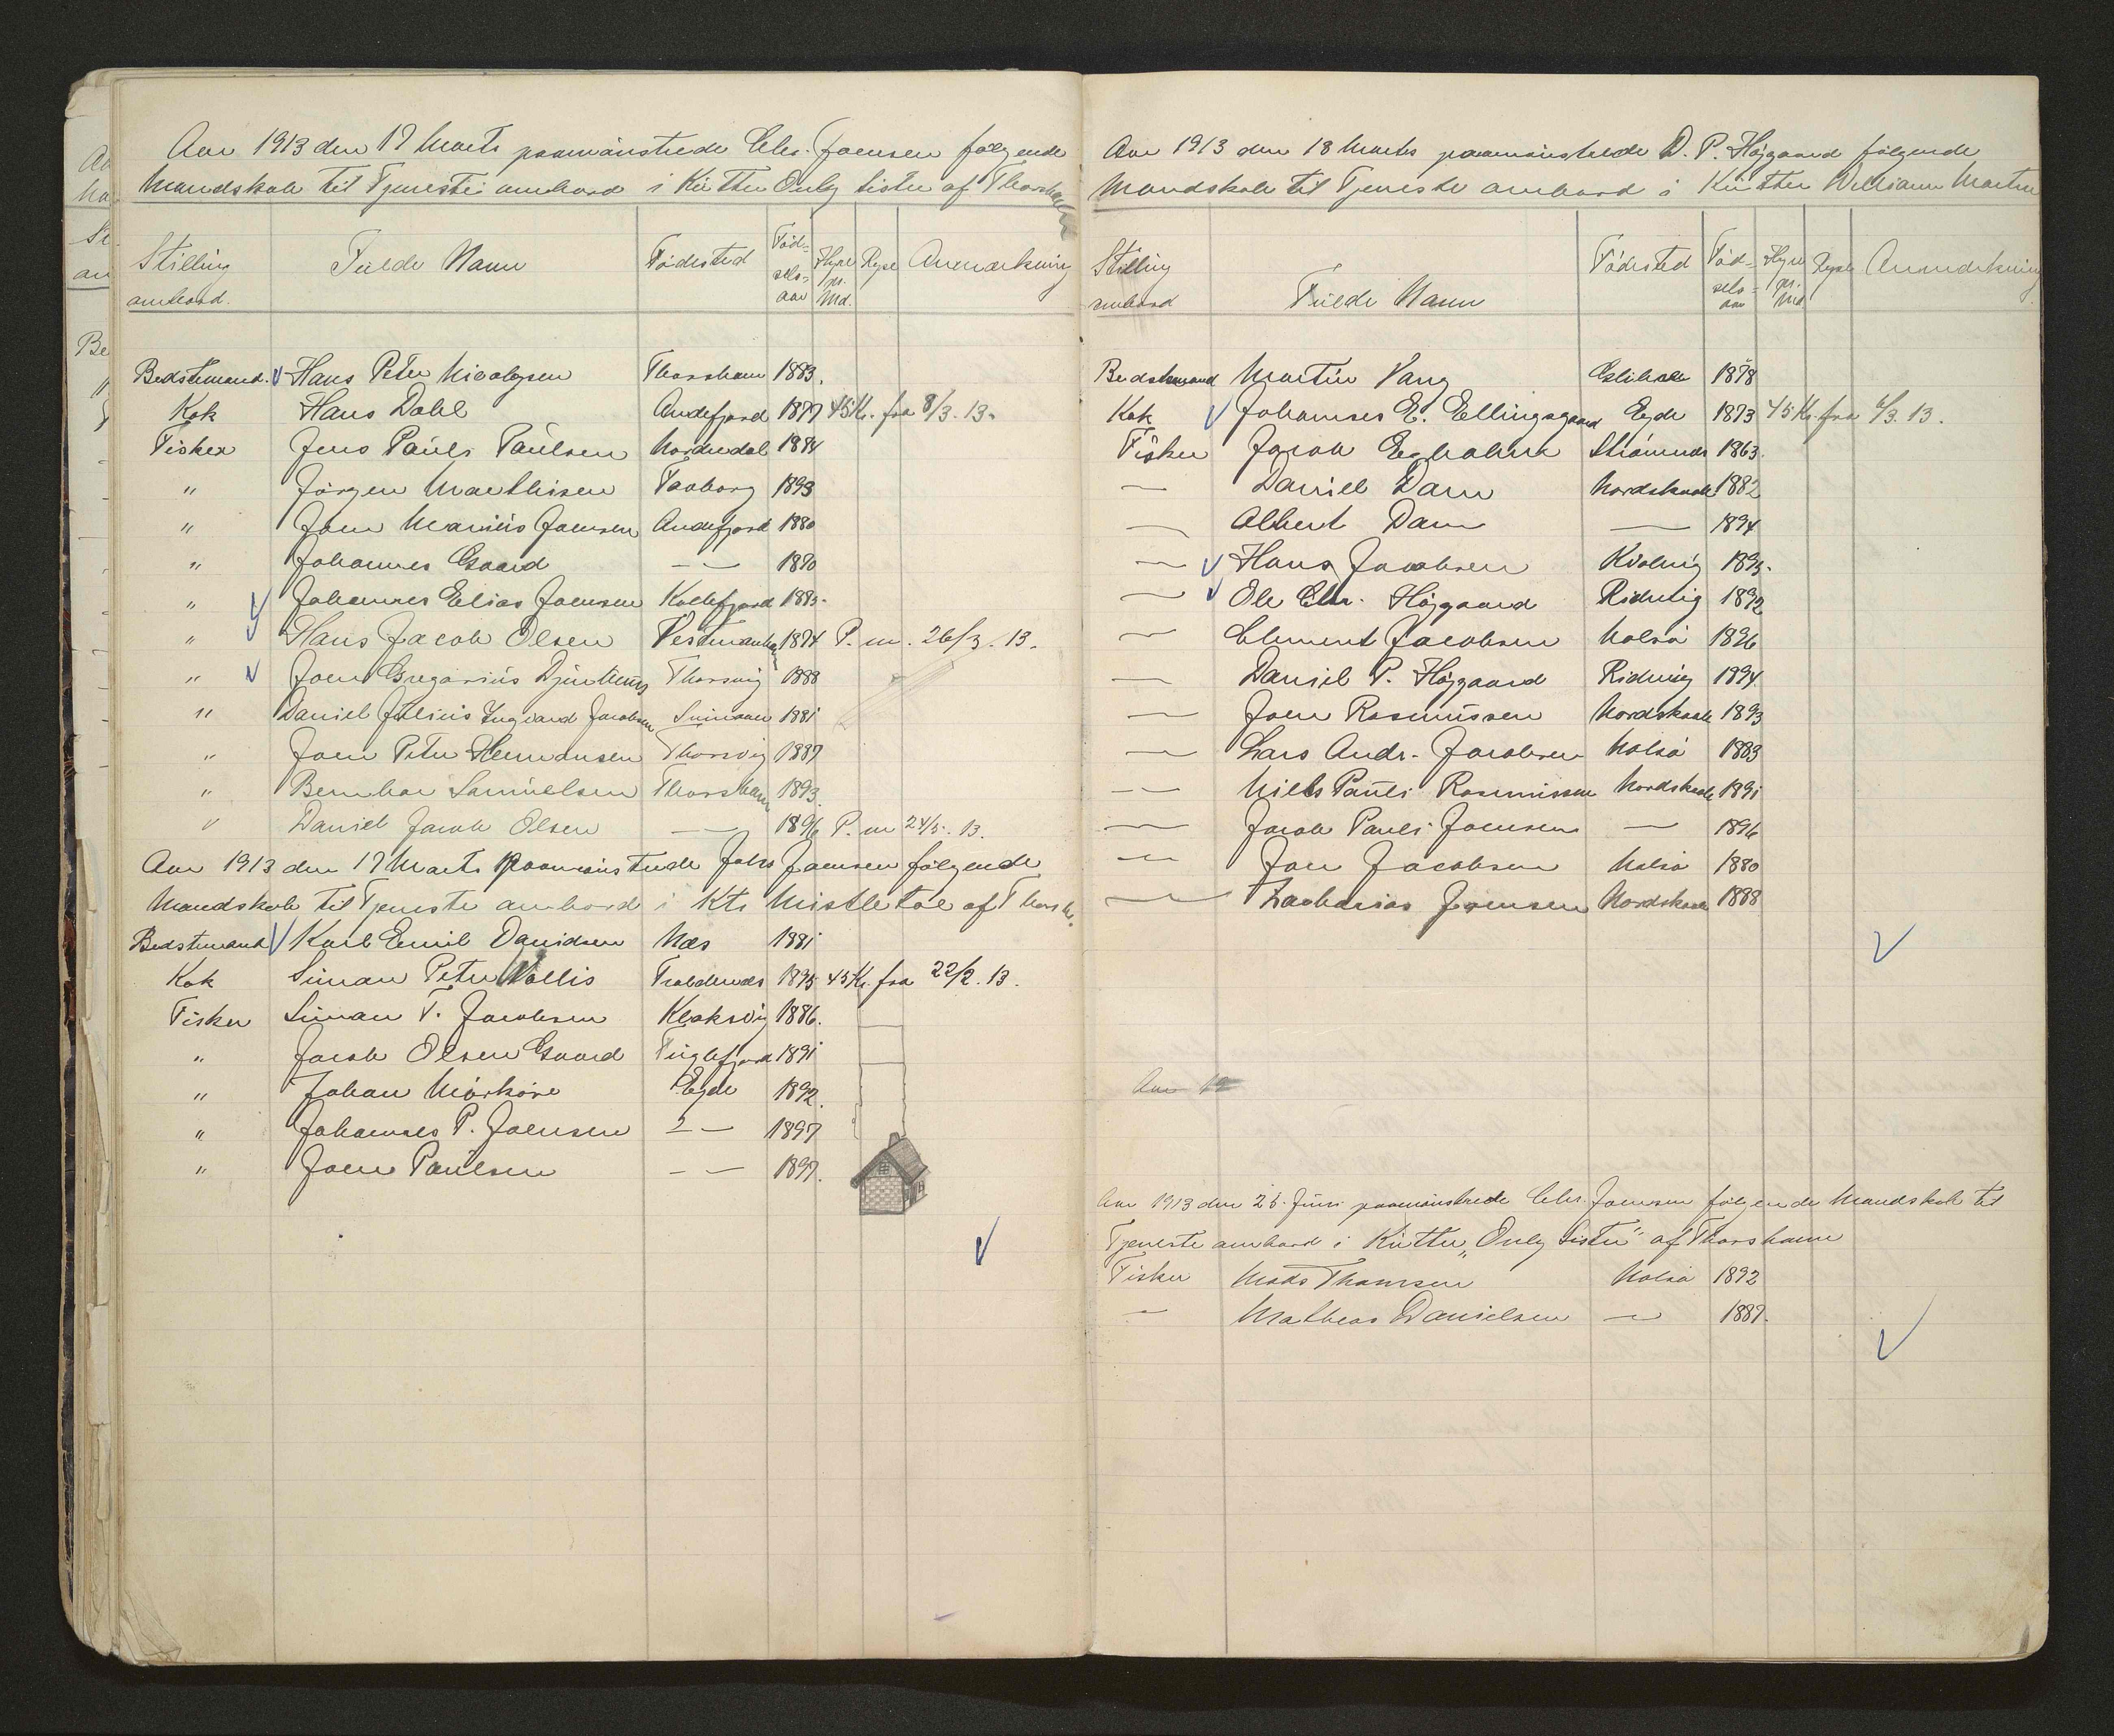 Aar 1913 den 17 Marts paamönstrede Chr. Joensen følgende
Mandskab til Tjeneste ombord i Kutter Only Sister af Thorshavn
Stilling ombord. Fulde Navn Födested Födselsaar Hyre pr. Md. Rejse Anmærkning
Bedstemand. Hans Peter Nicolajsen Thorshavn 1883.
Kok Hans Dahl Andefjord 1877 45 Kr. fra 8/3. 13.
Fisker Jens Pauli Paulsen Nordredal 1894
" Jörgen Marthisen Faaborg 1893
" Joen Marius Joensen Andefjord 1880
" Johannes Gaard — — 1890
" Johannes Elias Joensen Kollefjord 1895.
" Hans Jacob Olsen Vestmanhavn 1874 P. m. 26/3. 13.
" Joen Gregarius Djurhuus Thorsvig 1888
" Daniel Julius Ingvard Jacobsen 1881
" Joen Peter Hermansen Thorsvig 1887
" Bernhar Samuelsen Thorshavn 1893.
" Daniel Jacob Olsen — — 1896 P. m 24/5. 13.
Aar 1913 den 17 Marts paamönstrede Johs Joensen følgende
Mandskab til Tjeneste ombord i Ktr Mistletoe af Thorsh.
Bedstemand Karl Emil Davidsen Næs 1881
Kok Simon Peter Wallis 1895 45 Kr. fra 22/2. 13.
Fisker Simon F. Jacobsen Klaksvig 1886.
" Jacob Olsen Gaard Fuglefjord 1891
" Johan Mörköre Ejde 1892.
" Johannes P. Joensen — — 1897
" Joen Paulsen — — 1897.
Aar 1913 den 18 Marts paamönstrede D. P. Höjgaard følgende
Mandskab til Tjeneste ombord i Kutter William Martin
Stilling ombord Fulde Navn Födested Födselsaar Hyre pr. Md Rejse Anmærkning
Bedstemand Martin Vang 1878
Kok Johannes E. Ellingsgaard Ejde 1873 45 Kr. fra 6/3. 13.
Fisker Jacob Egholm Strömnæs 1863.
— Daniel Dam Nordskaale 1882
— Albert Dam — 1894
— Hans Jacobsen Kvalvig 1895.
— Ole Chr. Höjgaard Ridevig 1892
— Clement Jacobsen Nolsö 1896
— Daniel P. Höjgaard Ridevig 1894.
— Joen Rasmussen Nordskaale 1893
— Lars Andr. Jacobsen Nolsö 1883
— Niels Pauli Rasmussen Nordskaale 1891
— Jacob Pauli Joensen — 1896
— Jon Jacobsen Nolsö 1880
— Zacharias Joensen Nordskaale 1888
Aar 19
Aar 1913 den 25. Juni paamönstrede Chr. Joensen følgende Mandskab til
Tjeneste ombord i Kutter „Only Sister" af Thorshavn
Fisker Mads Thomsen Nolsö 1892
— Matheas Danielsen — 1887.